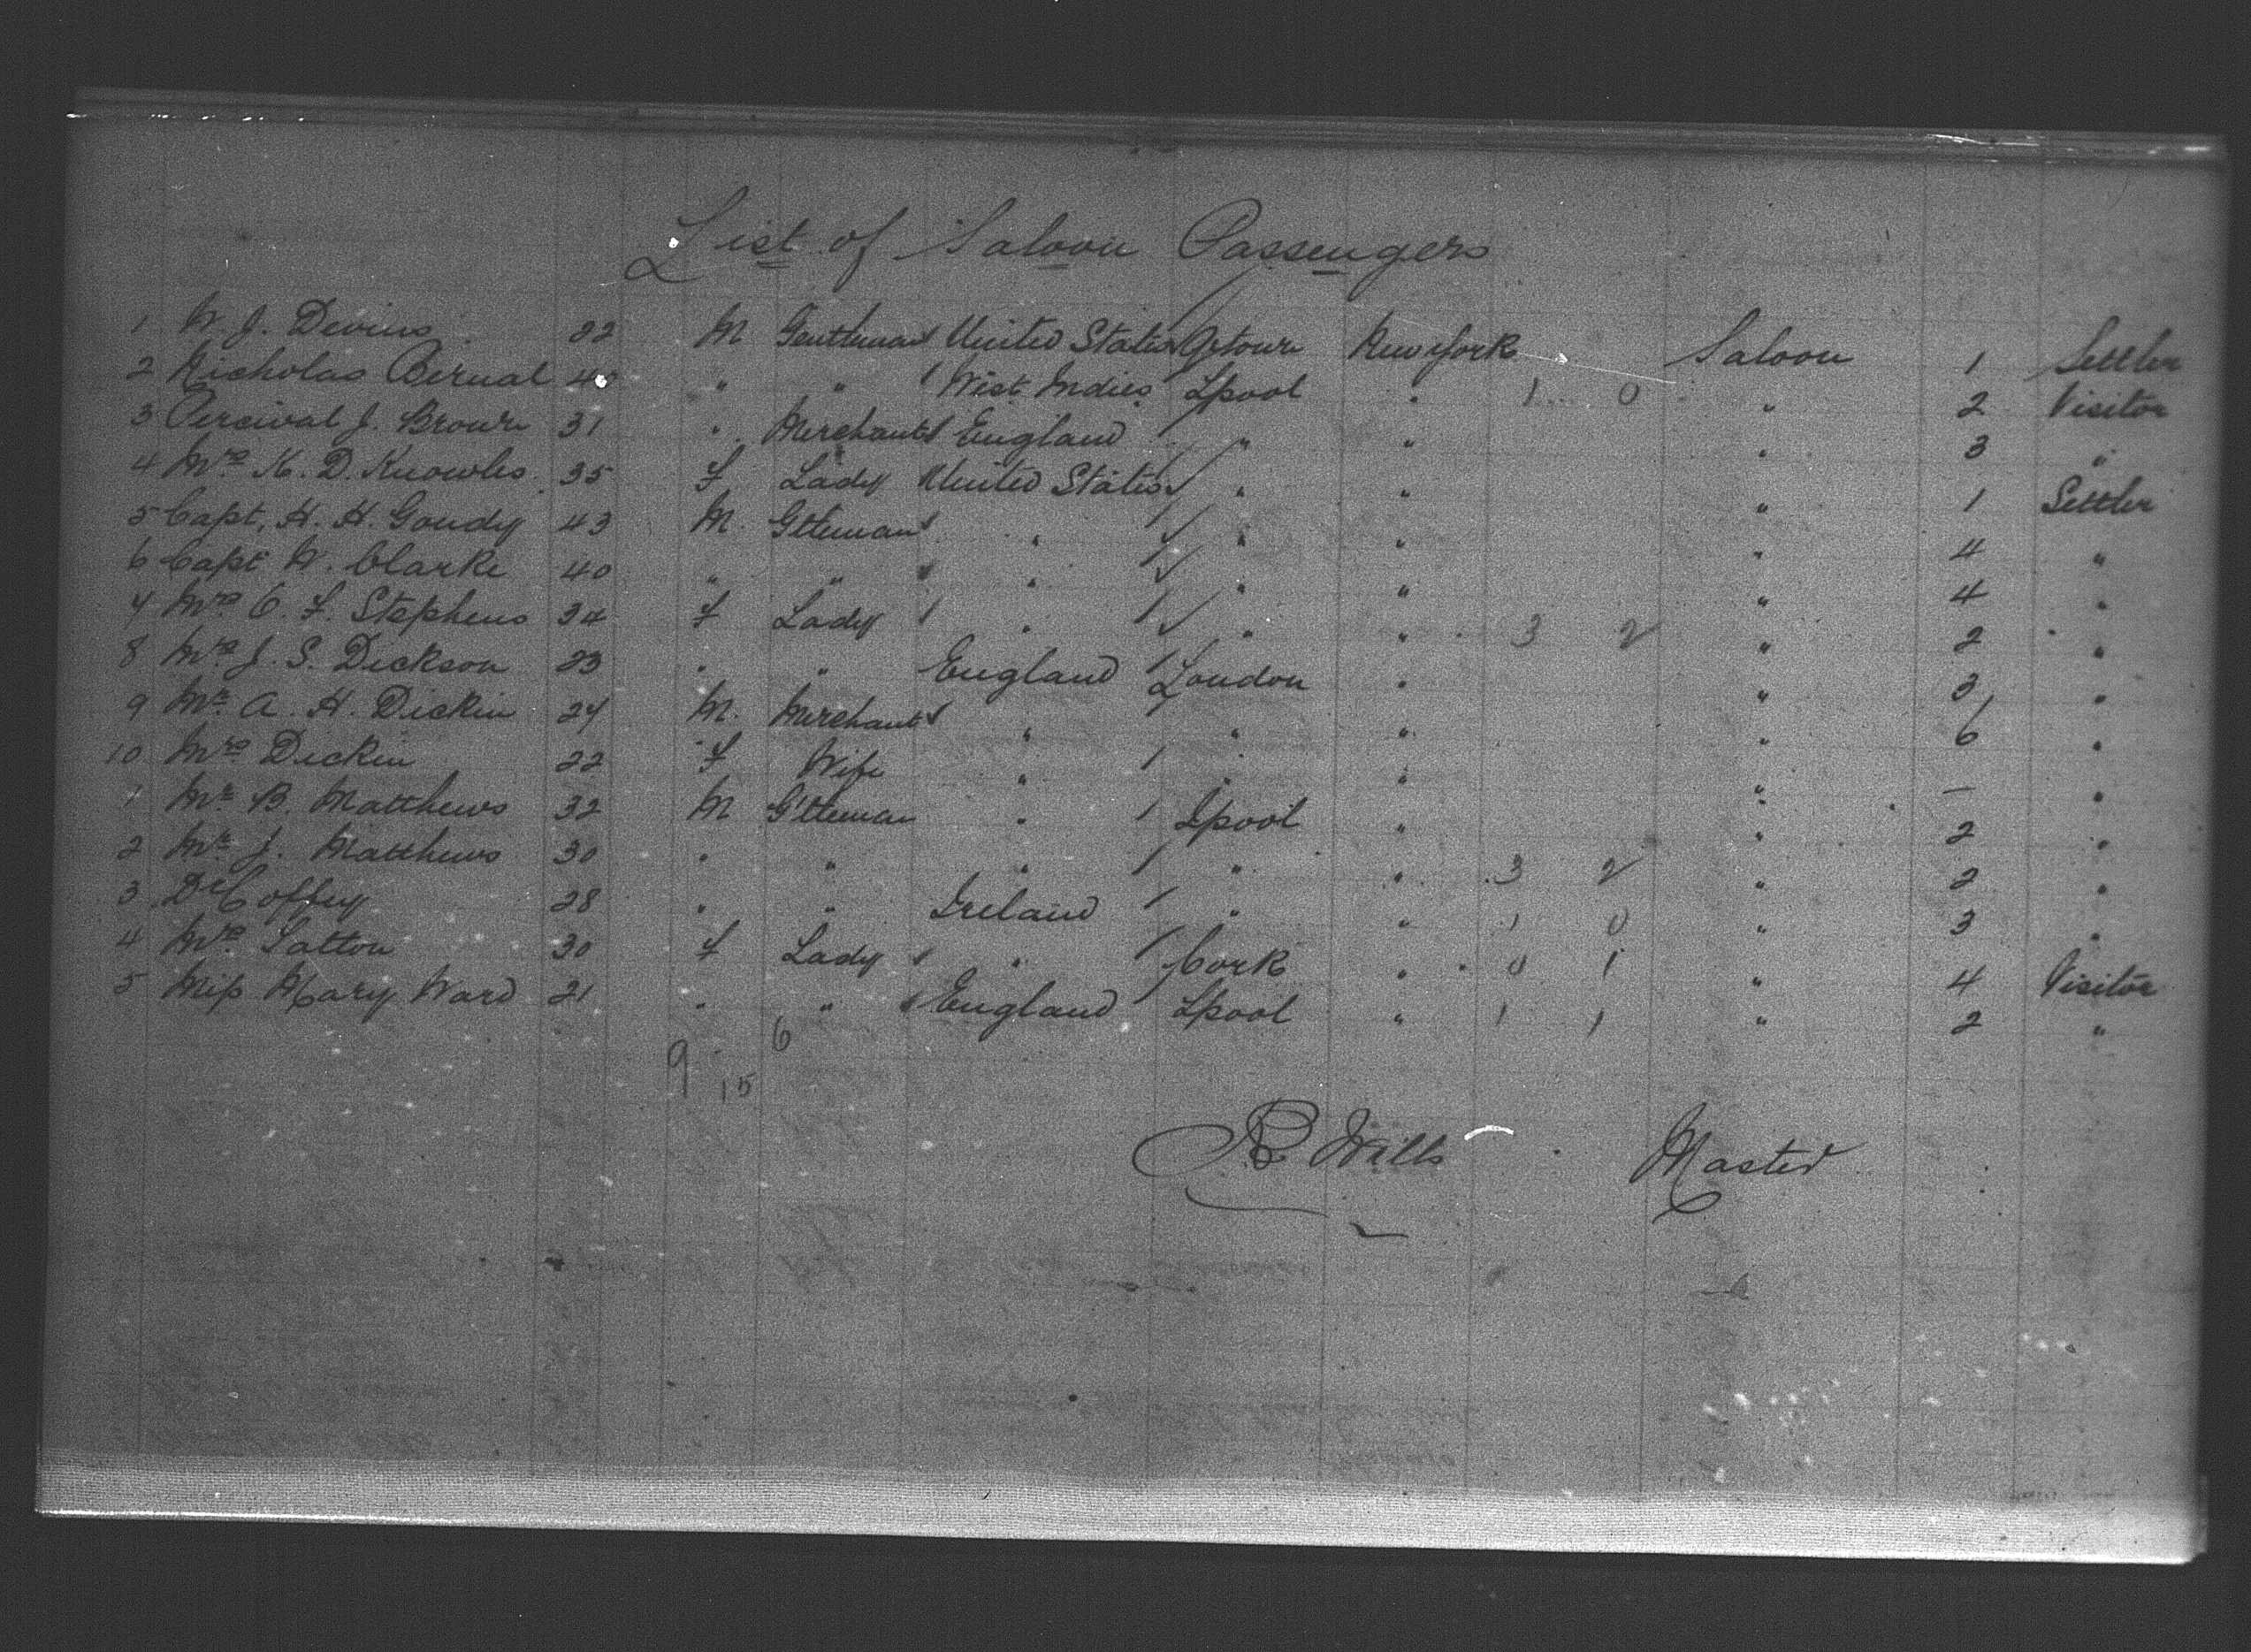 List of Saloon Passengers
1 W. J. Devins 22 M Gentleman United States Qtown New York Saloon 1 Settler
2 Nicholas Bernal 40 " " West Indies Lpool " 1 0 " 2 Visitor
3 Percival J. Brown 31 " Merchant England " " " 3 "
4 Mrs K. D. Knowles 35 F Lady United States " " " 1 Settler
5 Capt. H. H. Goudy 43 M. Gtleman " " " " 4 "
6 Capt W. Clarke 40 " " " " " " 4 "
7 Mrs C. F. Stephens 34 F Lady " " " 3 2 " 2 "
8 Mrs J. S. Dickson 23 " " England London " " 3 "
9 Mr A. H. Dickin 24 M. Merchant " " " " 6 "
10 Mrs Dickin 22 F Wife " " " " — "
1 Mr B. Matthews 32 M G'tleman " Lpool " " 2 "
2 Mr J. Matthews 30 " " " " " 3 2 " 2 "
3 Dr Coffey 28 " " Ireland " " 1 0 " 3 "
4 Mrs 30 F Lady " Cork " 0 1 " 4 Visitor
5 Miss Mary Ward 21 " " England Lpool " 1 1 " 2 "
9 6
15
Wills Master